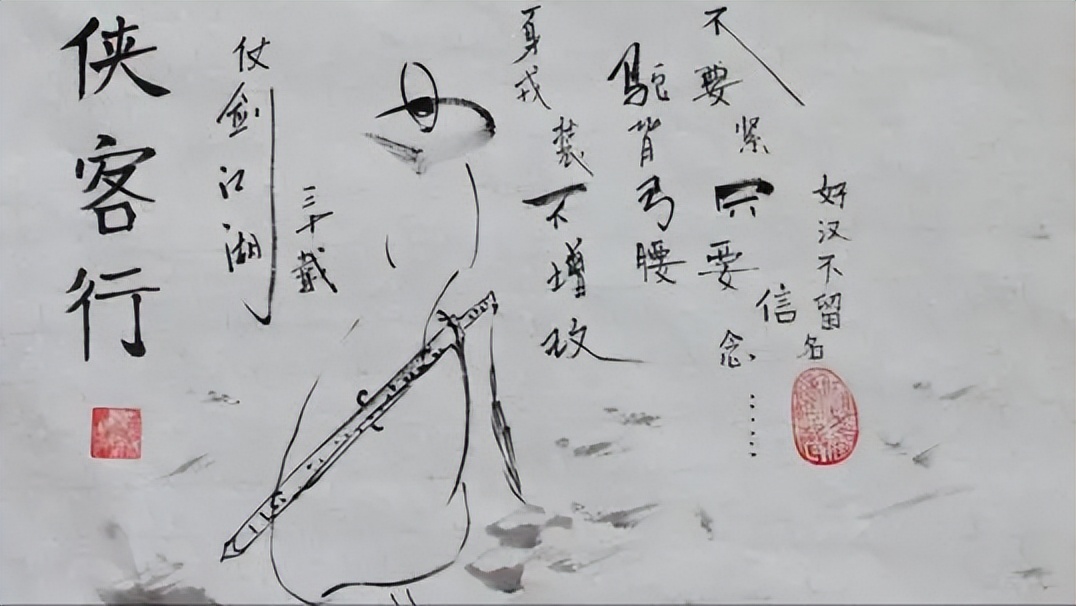 侠客行
仗剑江湖
三十戴
身戎装
不增改
驼背弓腰
不要紧
只要
信
念......
好汉不留名